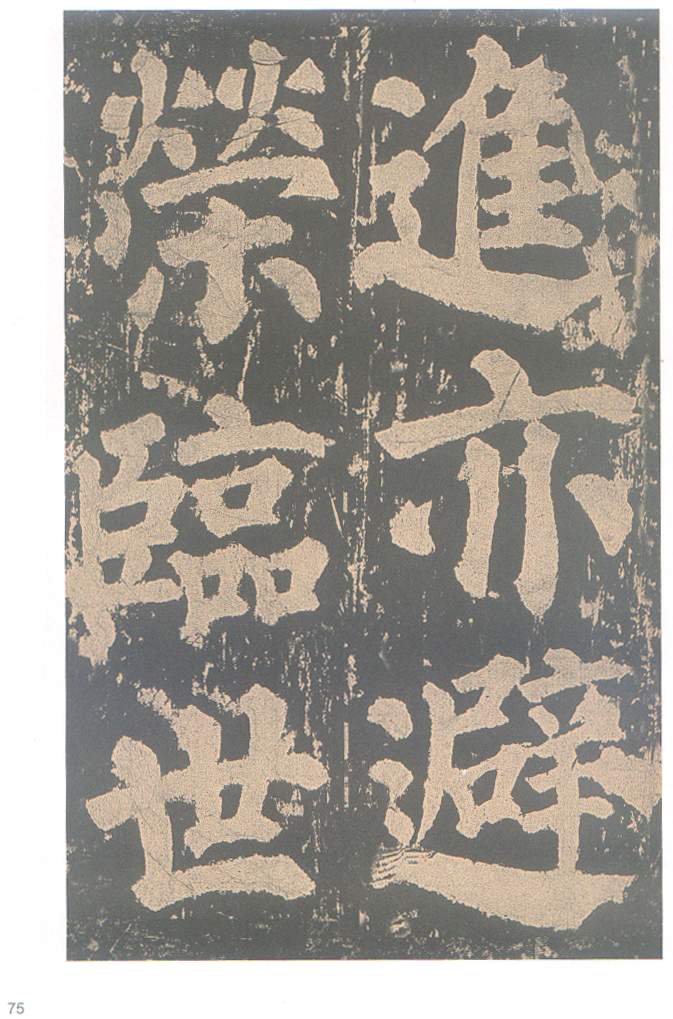 進亦避
榮臨世
75